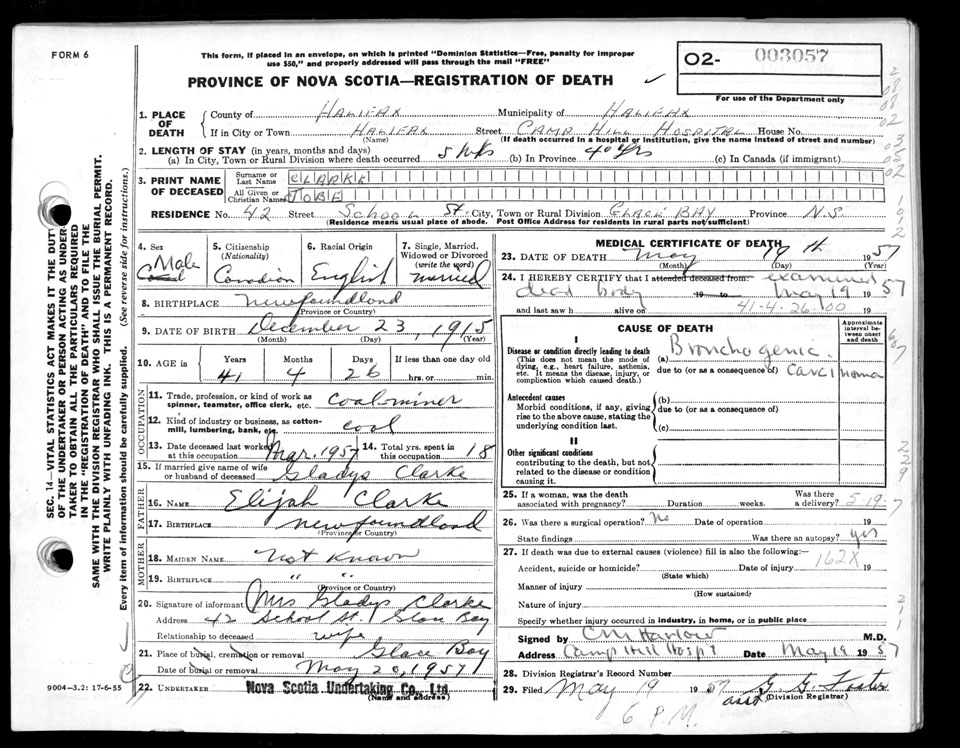 FORM 6
This form, if placed in an envelope, on which is printed "Dominion Statistics—Free, penalty for improper
use $50," and properly addressed will pass through the mail "FREE"
PROVINCE OF NOVA SCOTIA—REGISTRATION OF DEATH
O2- 003057
For use of the Department only
1. PLACE OF DEATH
County of HALIFAX Municipality of HALIFAX
If in City or Town HALIFAX Street CAMP HILL HOSPITAL House No.
(Name) (If death occurred in a hospital or institution, give the name instead of street and number)
2. LENGTH OF STAY (in years, months and days)
(a) In City, Town or Rural Division where death occurred 5 wks (b) In Province 40 yrs (c) In Canada (if immigrant)
3. PRINT NAME OF DECEASED
Surname or Last Name CLARKE
All Given or Christian Names TOBE
RESIDENCE No. 42 Street School St. City, Town or Rural Division GLACE BAY Province N.S.
(Residence means usual place of abode. Post Office Address for residents in rural parts not sufficient)
4. Sex Male
5. Citizenship (Nationality) Canadian
6. Racial Origin English
7. Single, Married, Widowed or Divorced (write the word) married
8. BIRTHPLACE Newfoundland
(Province or Country)
9. DATE OF BIRTH December 23, 1915
(Month) (Day) (Year)
10. AGE in Years Months Days If less than one day old
41 4 26 hrs. or min.
OCCUPATION
11. Trade, profession, or kind of work as
spinner, teamster, office clerk, etc. Coalminer
12. Kind of industry or business, as cotton-
mill, lumbering, bank, etc. Coal
13. Date deceased last worked at this occupation Mar. 1957 14. Total yrs. spent in 18
15. If married give name of wife
or husband of deceased Gladys Clarke
FATHER
16. NAME Elijah Clarke
17. BIRTHPLACE Newfoundland
(Province or Country)
MOTHER
18. MAIDEN NAME Not Known
19. BIRTHPLACE " "
(Province or Country)
20. Signature of informant Mrs Gladys Clarke
Address 42 School St. Glace Bay
Relationship to deceased wife
21. Place of burial, cremation or removal Glace Bay
Date of burial or removal May 20, 1957
22. UNDERTAKER Nova Scotia Undertaking Co., Ltd.
(Name and address)
9004—3.2: 17-6-55
SEC. 14—VITAL STATISTICS ACT MAKES IT THE DUTY
OF THE UNDERTAKER OR PERSON ACTING AS UNDER-
TAKER TO OBTAIN ALL THE PARTICULARS REQUIRED
IN THE "REGISTRATION OF DEATH" AND TO FILE THE
SAME WITH THE DIVISION REGISTRAR WHO SHALL ISSUE THE BURIAL PERMIT.
WRITE PLAINLY WITH UNFADING INK. THIS IS A PERMANENT RECORD.
Every item of information should be carefully supplied. (See reverse side for instructions.)
MEDICAL CERTIFICATE OF DEATH
23. DATE OF DEATH May 19th 1957
(Month) (Day) (Year)
24. I HEREBY CERTIFY that I attended deceased from: examined
dead body to May 19 1957
and last saw h alive on 19
41-4-26-00
CAUSE OF DEATH
Approximate interval between onset and death
I
Disease or condition directly leading to death
(This does not mean the mode of
dying, e.g., heart failure, asthenia,
etc. It means the disease, injury, or
complication which caused death.)
(a) Bronchogenic
due to (or as a consequence of) Carcinoma
Antecedent causes
Morbid conditions, if any, giving
rise to the above cause, stating the
underlying condition last.
(b)
due to (or as a consequence of)
(c)
II
Other significant conditions
contributing to the death, but not
related to the disease or condition
causing it.
25. If a woman, was the death
associated with pregnancy? Duration weeks. Was there a delivery?
5-19-7
26. Was there a surgical operation? No Date of operation 19
State findings Was there an autopsy? yes
27. If death was due to external causes (violence) fill in also the following:—
162X
Accident, suicide or homicide? Date of injury 19
(State which)
Manner of injury
(How sustained)
Nature of injury
Specify whether injury occurred in industry, in home, or in public place
Signed by CM Harlow M.D.
Address Camp Hill Hosp't Date May 19 1957
28. Division Registrar's Record Number
29. Filed May 19 1957 G. G. Foster
asst (Division Registrar)
6 P.M.